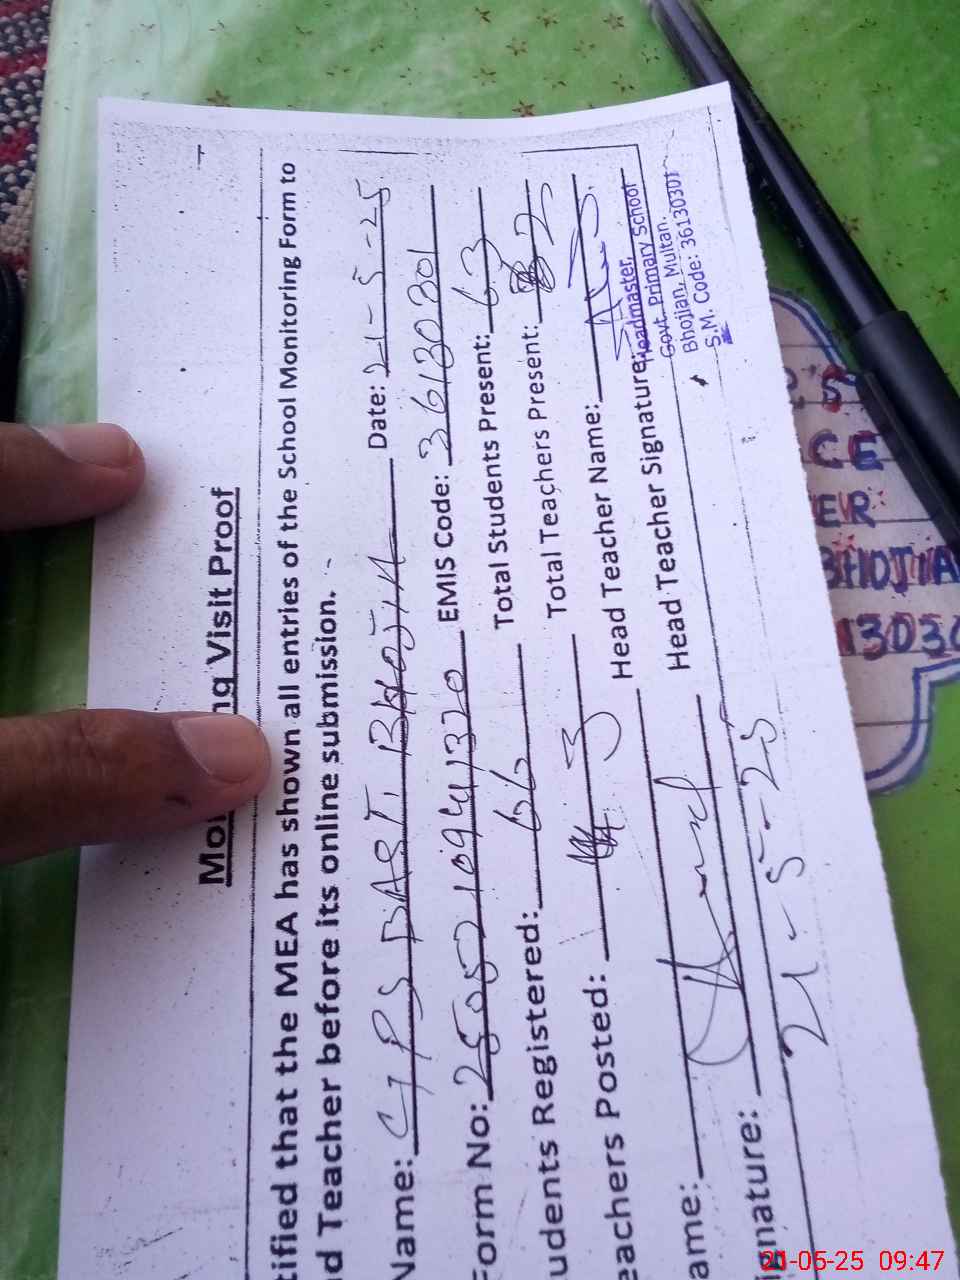 Mo ng Visit Proof
tified that the MEA has shown all entries of the School Monitoring Form to
d Teacher before its online submission.
Name: GPS BASTI BHOJIA Date: 21-5-25
Form No: EMIS Code: 36130301
udents Registered: 66 Total Students Present: 63
eachers Posted: 3 Total Teachers Present: 2
ame: Head Teacher Name:
ignature: Head Teacher Signature:
21-5-25
Headmaster,
Govt. Primary School
Bhojian, Multan.
S.M. Code: 36130301
CE
ER
BHOJIA
1303
21-05-25 09:47